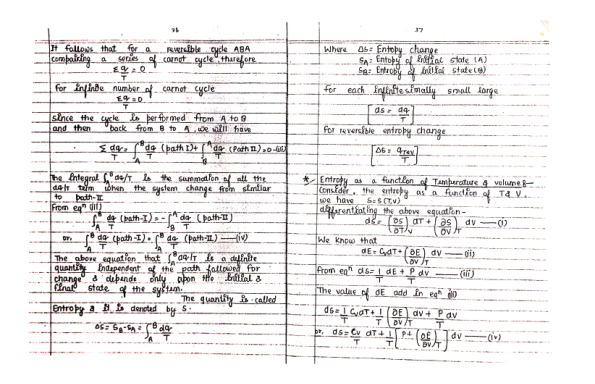 36
It follows that for a reversible cycle ABA
compairing a series of carnot cycle. therefore
Σ q/T = 0
For infinite number of carnot cycle
Σ q/T = 0
since the cycle is performed from A to B
and then back from B to A, we will have
Σ dq/T = ∫_A^B dq/T (path I) + ∫_B^A dq/T (Path II) = 0 -(iii)
The integral ∫_A^B dq/T is the summation of all the
dq/T term when the system change from similar
to path-II
From eqn (iii)
∫_A^B dq/T (path-I) = - ∫_B^A dq/T (path-II)
or, ∫_A^B dq/T (path-I) = ∫_A^B dq/T (path-II) —(iv)
The above equation that ∫_A^B dq/T is a definite
quantity independent of the path followed for
change & depends only upon the initial &
final state of the system.
The quantity is called
Entropy & it is denoted by S.
ΔS = S_B - S_A = ∫_A^B dq/T
37
Where ΔS = Entopy change
S_A = Entopy of initial state (A)
S_B = Entropy of initial state (B)
for each infinitesimally small large
ds = dq/T
For reversible entropy change
ΔS = q_rev/T
* Entropy as a function of Tamperature & volume :-
Consider, the entropy as a function of T & V.
we have S=S (T,V)
differentiating the above equation -
ds = (∂S/∂T)_V dT + (∂S/∂V)_T dv —(i)
We know that
dE = CvdT + (∂E/∂V)_T dv —(ii)
From eqn ds = 1/T dE + P/T dv —(iii)
The value of dE add in eqn (iii)
ds = 1/T Cv dT + 1/T (∂E/∂V)_T dv + P/T dv
or, ds = Cv/T dT + 1/T [P + (∂E/∂V)_T] dv —(iv)